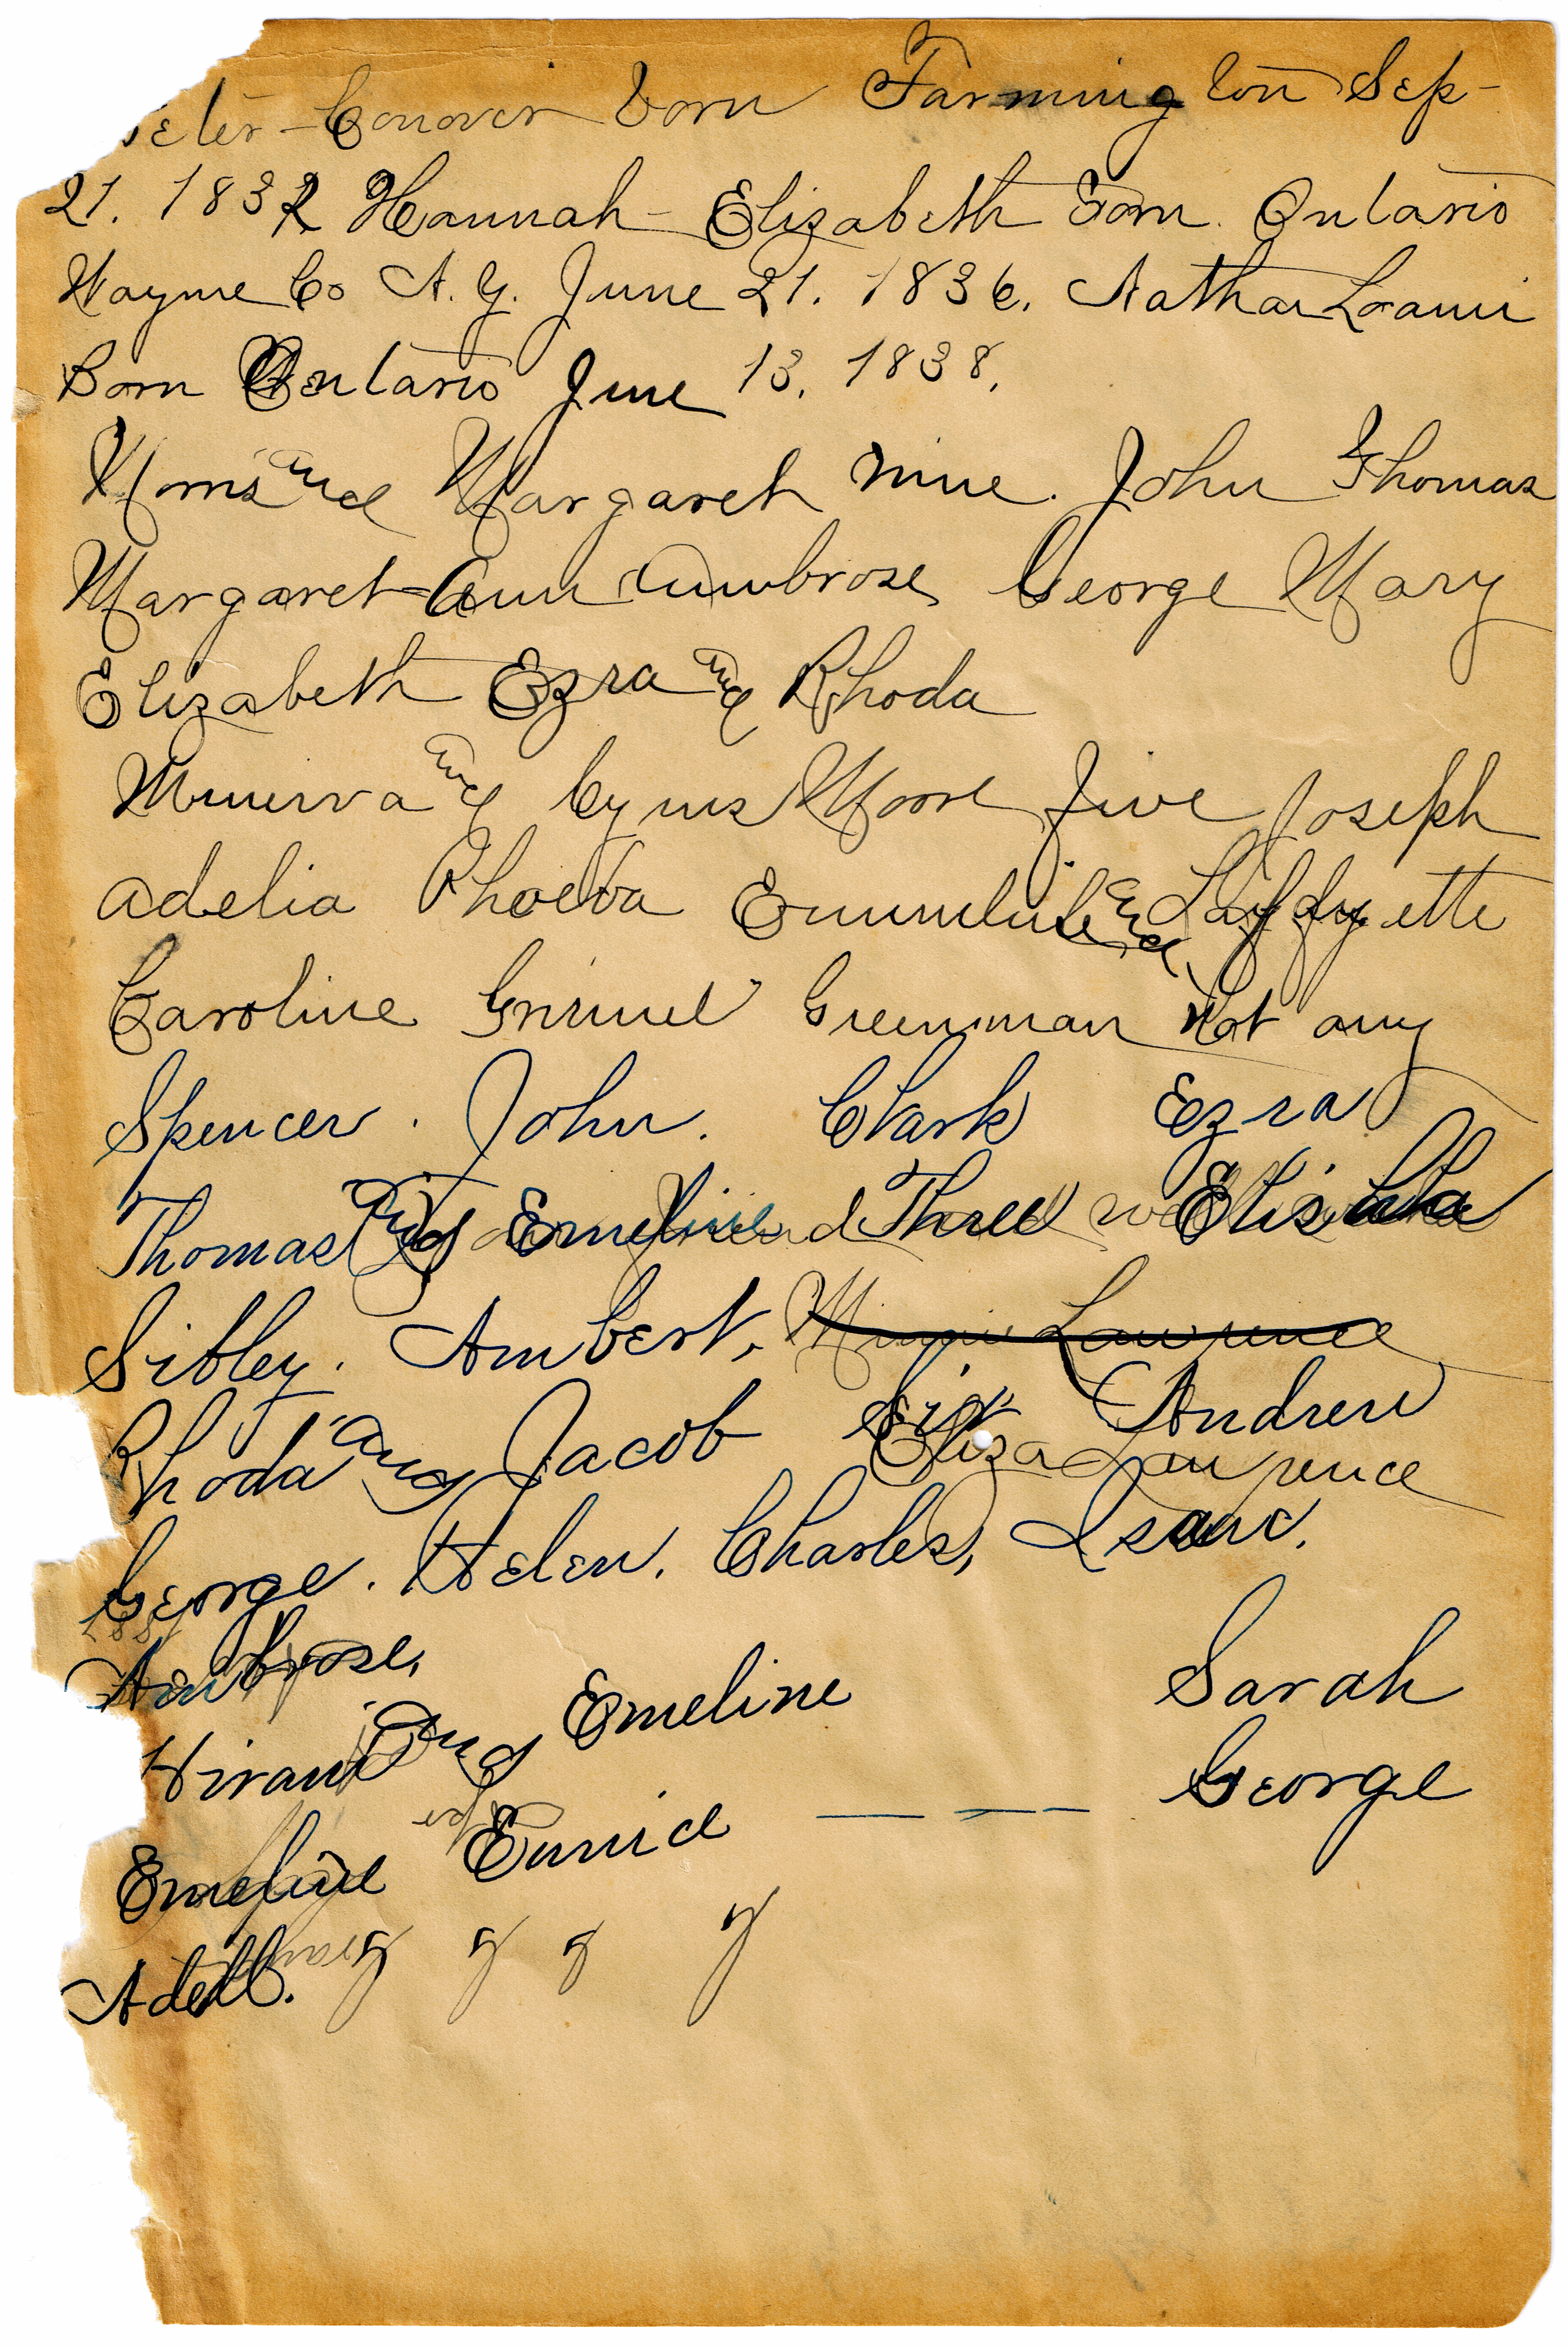 Peter-Conover Born Farmington Sep-
21. 1832 Hannah-Elizabeth Born. Ontario
Wayne Co N.Y. June 21. 1836. Nathan Loami
Born Ontario June 13. 1838.
Morris and Margaret nine. John Thomas
Margaret-Ann Ambrose George Mary
Elizabeth Ezra and Rhoda
Minerva and Cyrus Moore five Joseph
Adelia Phoeba Emmeline and Layfayette
Caroline Grinnel Greenman Not any
Spencer. John. Clark Ezra
Thomas and Emeline Three Elisha
Sibley. Ambert, Minnie Lawrence
Rhoda and Jacob Six Andrew
Eliza Lawrence
George. Helen. Charles, Isaac.
Ambrose.
Hiram and Emeline Sarah
Emeline Eunice — — — George
Adell.
y y y y